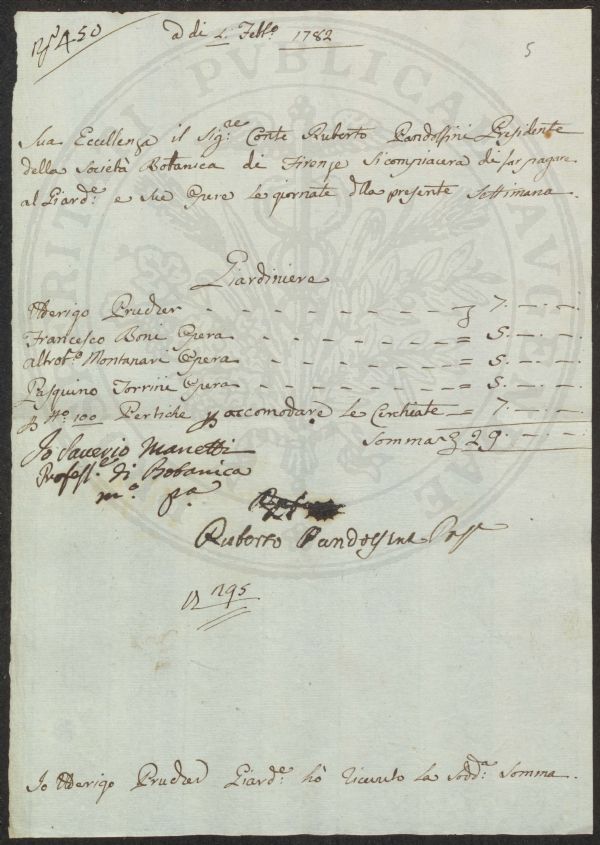 N.º 450
a di 2. Febb.º 1782
5
Sua Eccellenza il Sig.re Conte Ruberto Pandolfini Presidente
della Società Botanica di Firenze si compiacerà di far pagare
al Giard.e e sue Opere le giornate della presente Settimana.
Giardiniere
Alderigo Prucher - - - - - - - - - £ 7. -. -.
Francesco Boni Opera - - - - - - - = 5. -. -.
Montanari Opera - - - - - - - = 5. -. -.
Pasquino Torrini Opera - - - - - - - = 5. -. -.
p N.º 100 Pertiche p accomodare le Cerchiate = 7. -. -.
Somma £ 29. -. -.
Io Saverio Manetti
Profess.e di Botanica
m.º p.a
Ruberto Pandolfini Pres.
295
Io Alderigo Prucher Giard.e hò ricevuto la sodd.a somma.